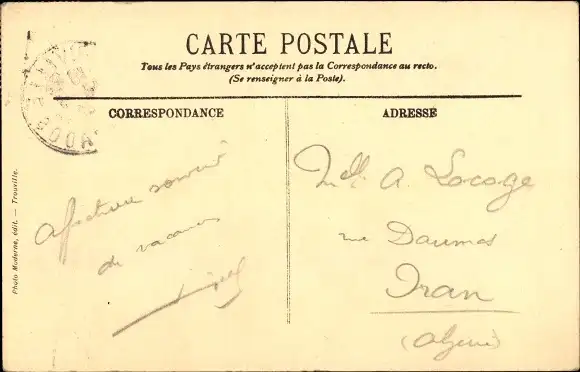 CARTE POSTALE
Tous les Pays étrangers n'acceptent pas la Correspondance au recto.
(Se renseigner à la Poste).
CORRESPONDANCE
ADRESSE
Affectueux souvenir
de vacances
Mlle A. Locoge
rue Daumas
Oran
(Algérie)
Photo Moderne, édit. — Trouville.